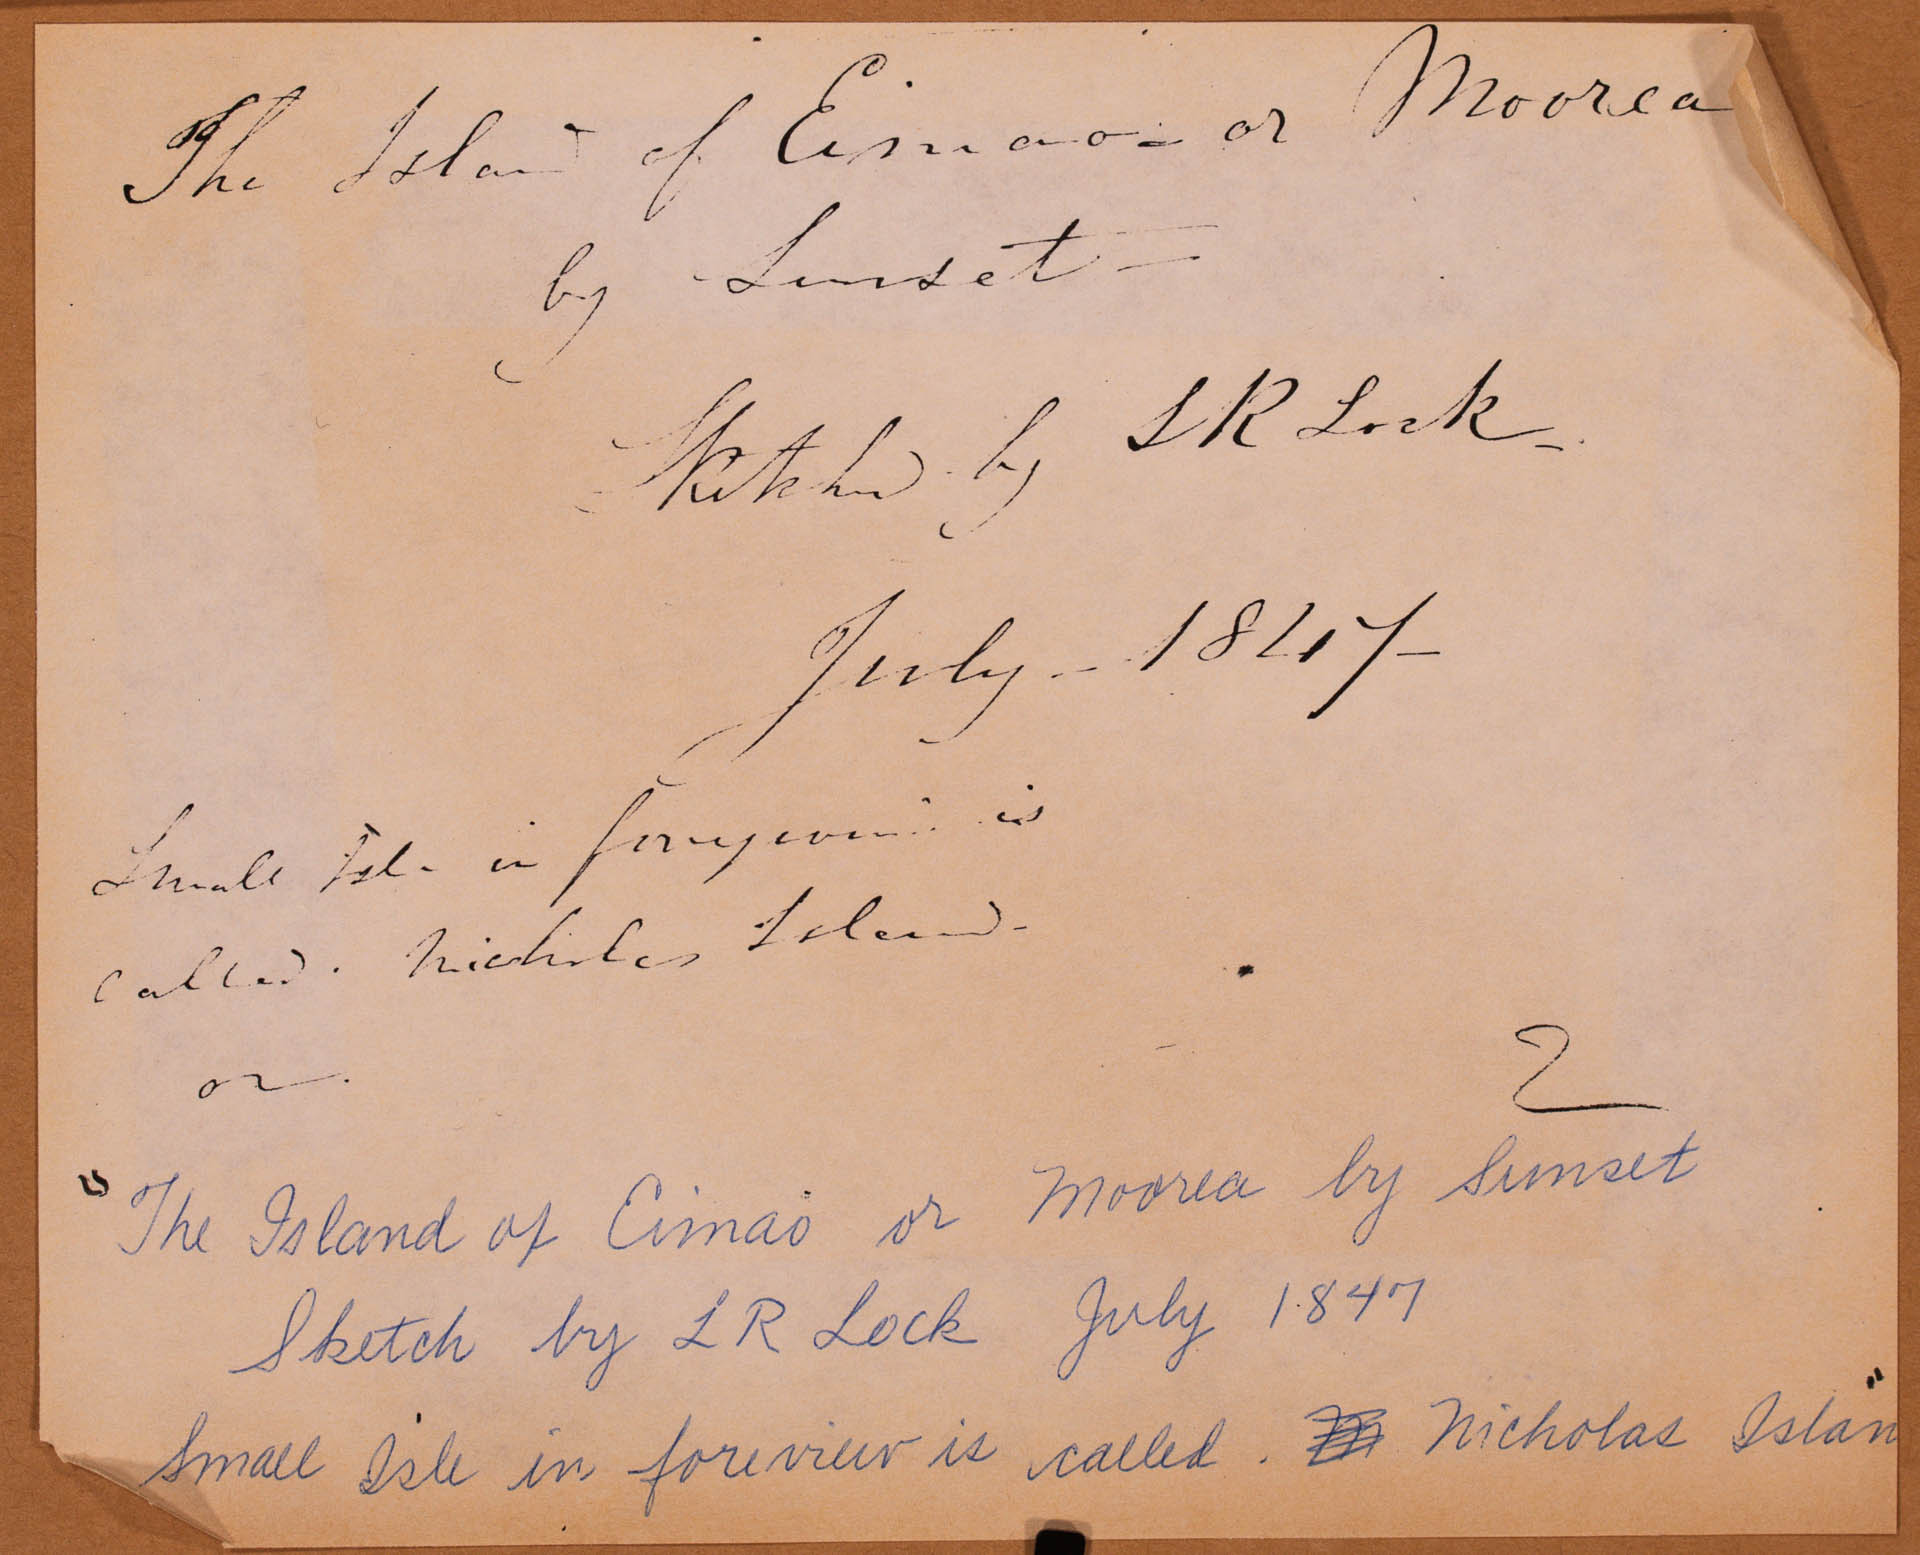 The Island of Eimao - or Moorea
by Sunset -
Sketched by L R Lock -
July - 1847 -
Small Isle in is
called. Nicholas Island -
or
2
"The Island of Eimao or Moorea by Sunset
Sketch by L R Lock July 1847
Small Isle in foreview is called. Nicholas Islan"